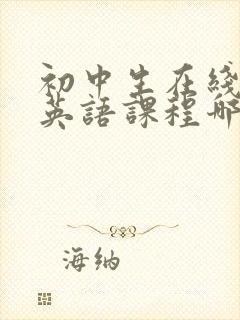 初中生在綫
英語課程哪
海纳